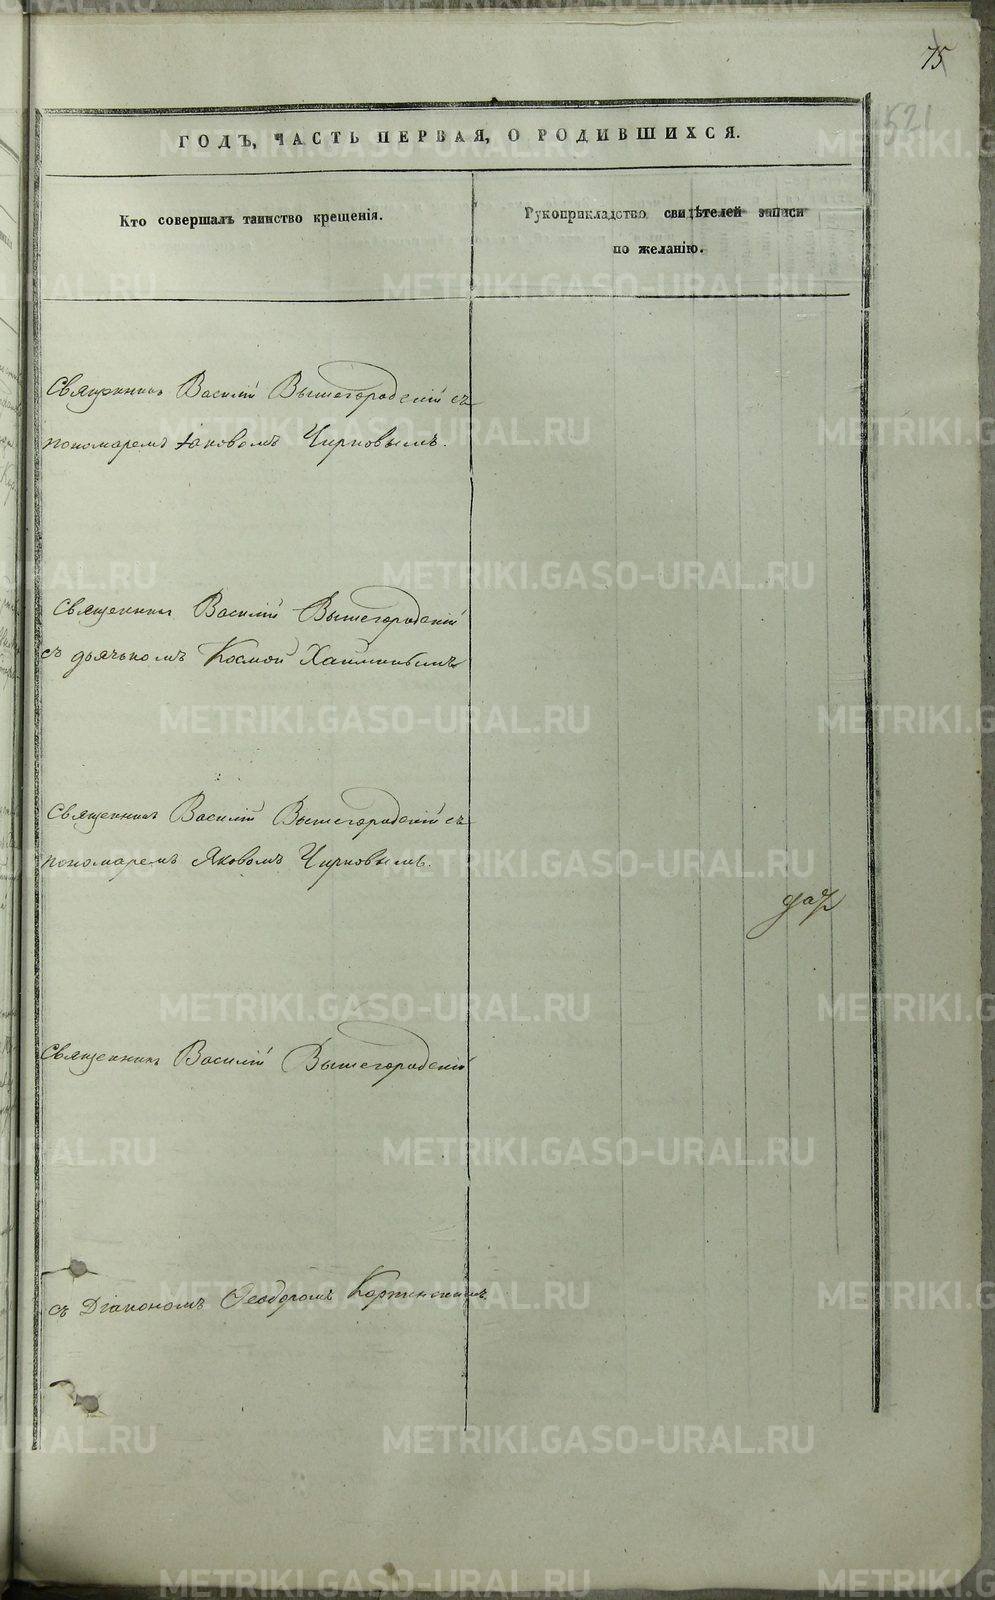 75
521
ГОДЪ, ЧАСТЬ ПЕРВАЯ, О РОДИВШИХСЯ.
Кто совершалъ таинство крещенія.
Рукоприкладство свидѣтелей записи
по желанію.
Священникъ Василій Вышегородскій съ
пономаремъ Іаковомъ Чирковымъ.
Священникъ Василій Вышегородскій
съ дьячкомъ Космой
Священникъ Василій Вышегородскій съ
пономаремъ Яковомъ Чирковымъ.
Священникъ Василій Вышегородскій
съ Діакономъ Ѳеодоромъ
METRIKI.GASO-URAL.RU